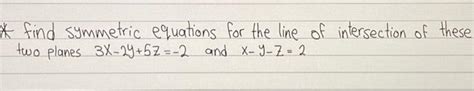 * find symmetric equations for the line of intersection of these
two planes 3x-2y+5z=-2 and x-y-z=2